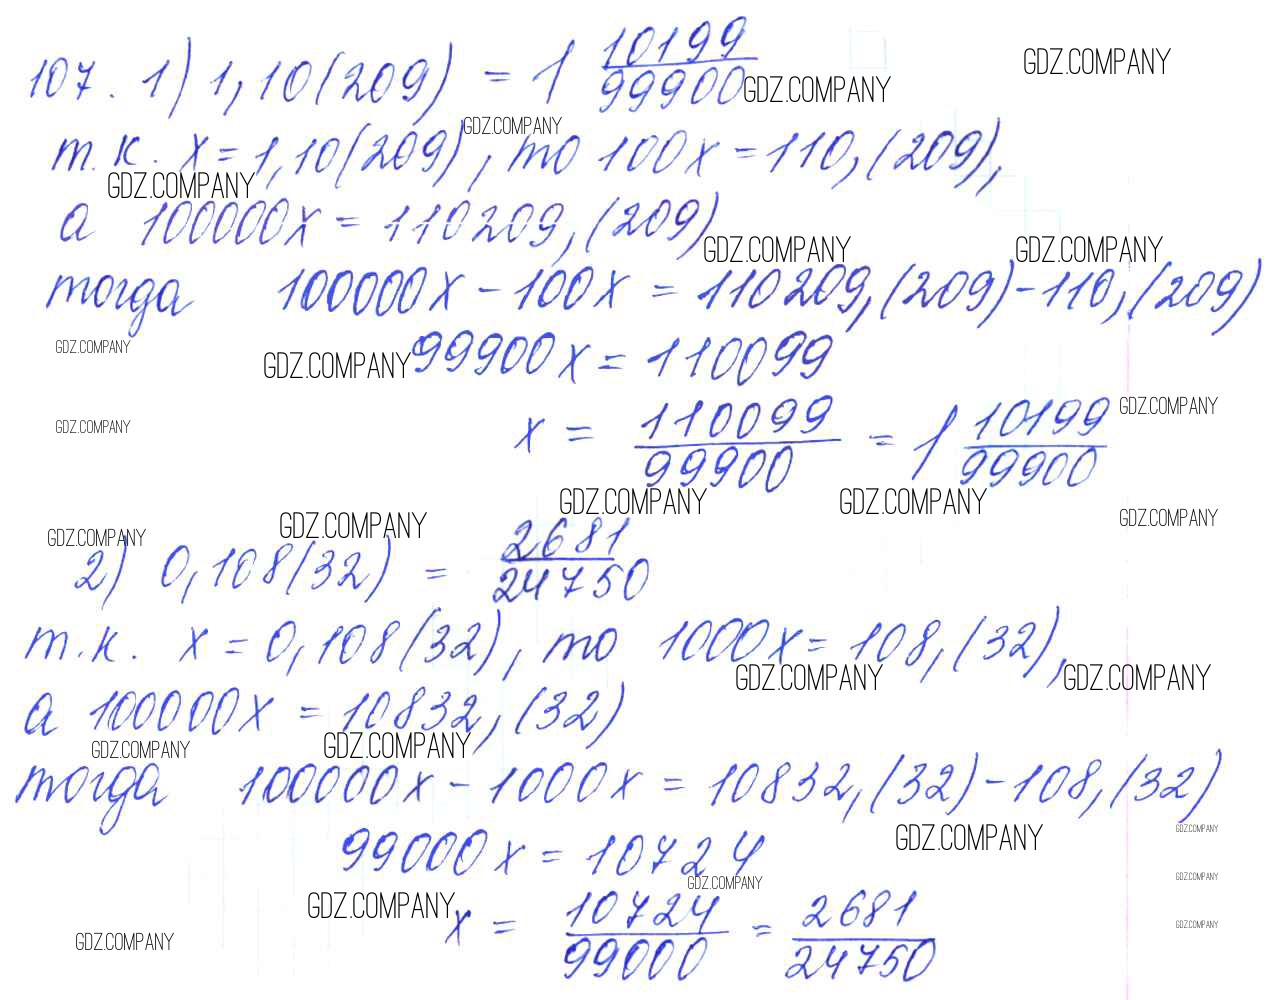 107. 1) 1,10(209) = 1 10199/99900
GDZ.COMPANY
GDZ.COMPANY
GDZ.COMPANY
т.к. x = 1,10(209), то 100x = 110,(209),
GDZ.COMPANY
а 100000x = 110209,(209)
GDZ.COMPANY GDZ.COMPANY
тогда 100000x - 100x = 110209,(209) - 110,(209)
GDZ.COMPANY
GDZ.COMPANY
99900x = 110099
GDZ.COMPANY
GDZ.COMPANY
x = 110099/99900 = 1 10199/99900
GDZ.COMPANY GDZ.COMPANY
GDZ.COMPANY
GDZ.COMPANY
GDZ.COMPANY
2) 0,108(32) = 2681/24750
т.к. x = 0,108(32), то 1000x = 108,(32),
GDZ.COMPANY GDZ.COMPANY
а 100000x = 10832,(32)
GDZ.COMPANY GDZ.COMPANY
тогда 100000x - 1000x = 10832,(32) - 108,(32)
GDZ.COMPANY
GDZ.COMPANY
99000x = 10724
GDZ.COMPANY
GDZ.COMPANY
GDZ.COMPANY
x = 10724/99000 = 2681/24750
GDZ.COMPANY
GDZ.COMPANY